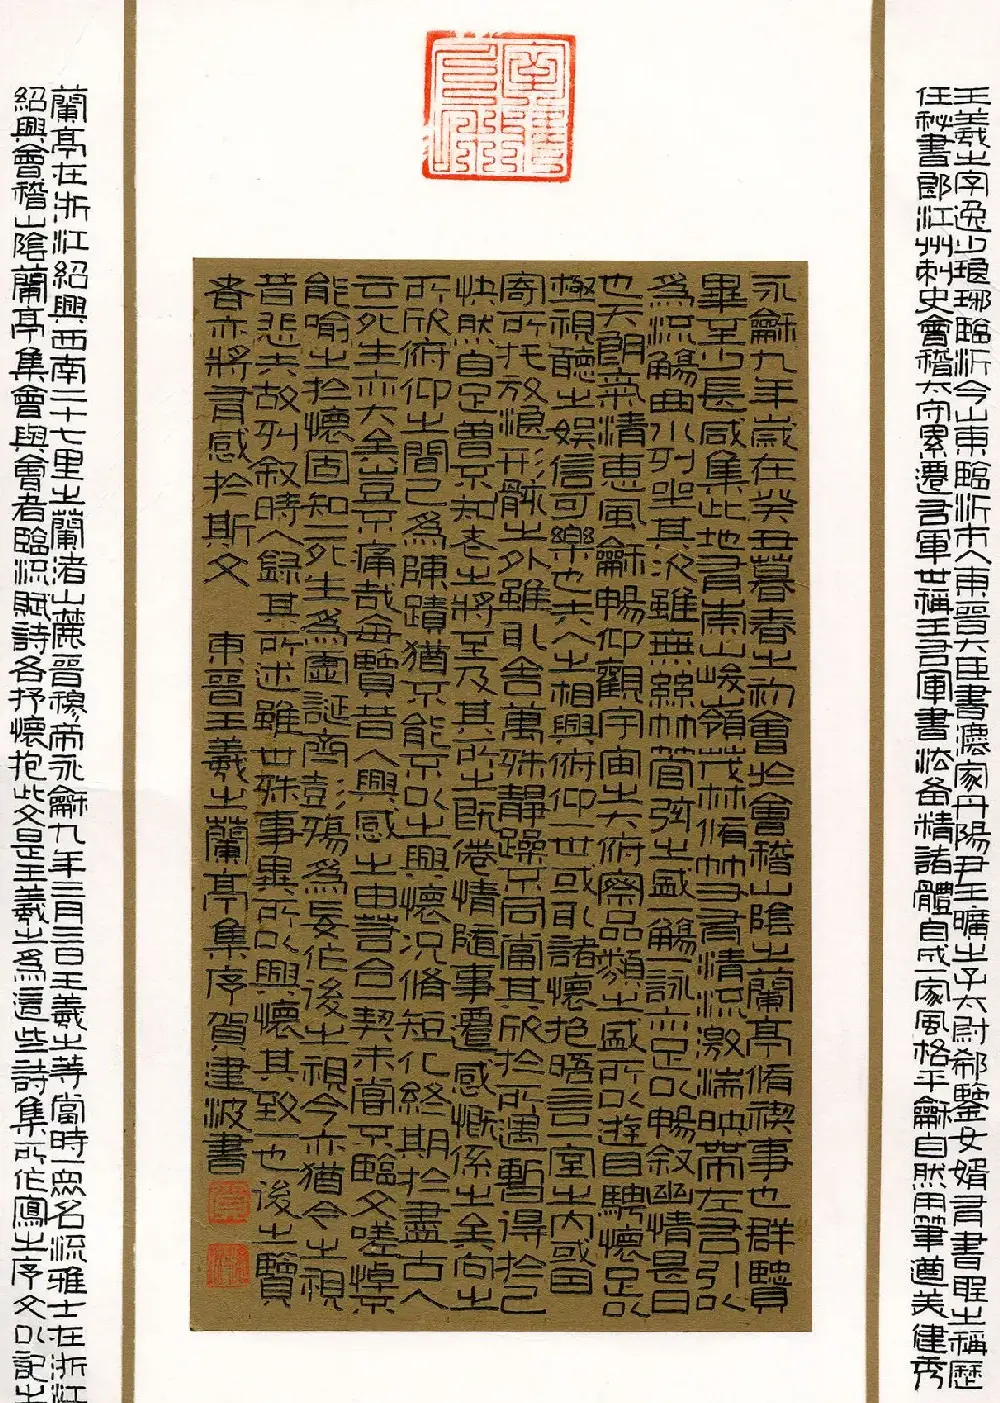 王羲之字逸少琅琊臨沂今山東臨沂市人東晉大臣書灋家丹陽尹王曠之子太尉郗鑒女婿有書聖之稱歷
任秘書郎江州刺史會稽太守累遷右軍世稱王右軍書法备精諸體自成一家風格平龢自然用筆遒美健秀
永龢九年歲在癸丑暮春之初會於會稽山陰之蘭亭脩禊事也群賢
畢至少長咸集此地有崇山峻嶺茂林脩竹又有清流激湍映帶左右引以
為流觴曲水列坐其次雖無絲竹管弦之盛一觴一詠亦足以暢叙幽情是日
也天朗氣清惠風龢暢仰觀宇宙之大俯察品類之盛所以遊目騁懷足以
極視聽之娛信可樂也夫人之相與俯仰一世或取諸懷抱晤言一室之內或因
寄所托放浪形骸之外雖取舍萬殊靜躁不同當其欣於所遇暫得於己
快然自足曾不知老之將至及其所之既倦情隨事遷感慨係之矣向之
所欣俯仰之間已為陳蹟猶不能不以之興懷況脩短化終期於盡古人
云死生亦大矣豈不痛哉每覽昔人興感之由若合一契未嘗不臨文嗟悼不
能喻之於懷固知一死生為虛誕齊彭殤為妄作後之視今亦猶今之視
昔悲夫故列叙時人錄其所述雖世殊事異所以興懷其致一也後之覽
者亦將有感於斯文 東晉王羲之蘭亭集序賀建波書
蘭亭在浙江紹興西南二十七里之蘭渚山麓晉穆帝永龢九年三月三日王羲之等當時一眾名流雅士在浙江
紹興會稽山陰蘭亭集會與會者臨流賦詩各抒懷抱此文是王羲之為這些詩集所作寫之序文以記之